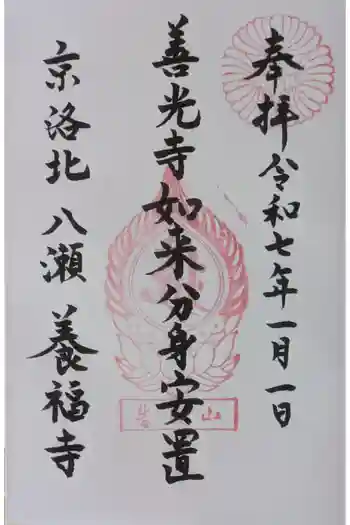 奉拝 令和七年一月一日
善光寺如来分身安置
京洛北 八瀬 養福寺